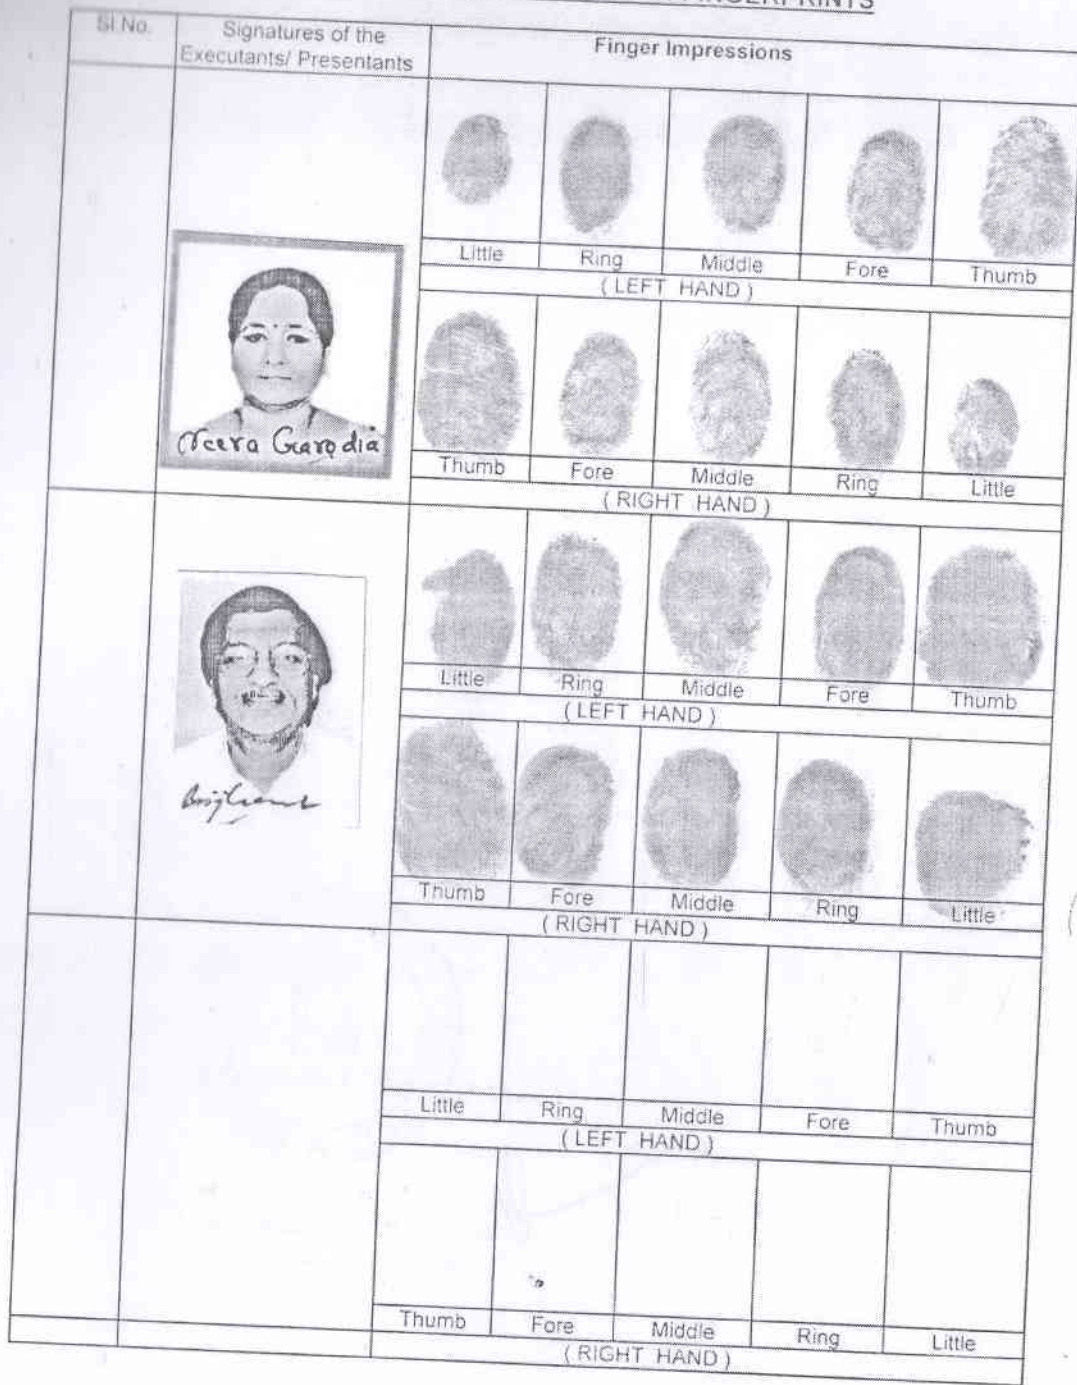 FINGERPRINTS
Sl.No.
Signatures of the
Executants/ Presentants
Finger Impressions
Little Ring Middle Fore Thumb
( LEFT HAND )
Neera Garodia
Thumb Fore Middle Ring Little
( RIGHT HAND )
Little Ring Middle Fore Thumb
( LEFT HAND )
Thumb Fore Middle Ring Little
( RIGHT HAND )
Little Ring Middle Fore Thumb
( LEFT HAND )
Thumb Fore Middle Ring Little
( RIGHT HAND )